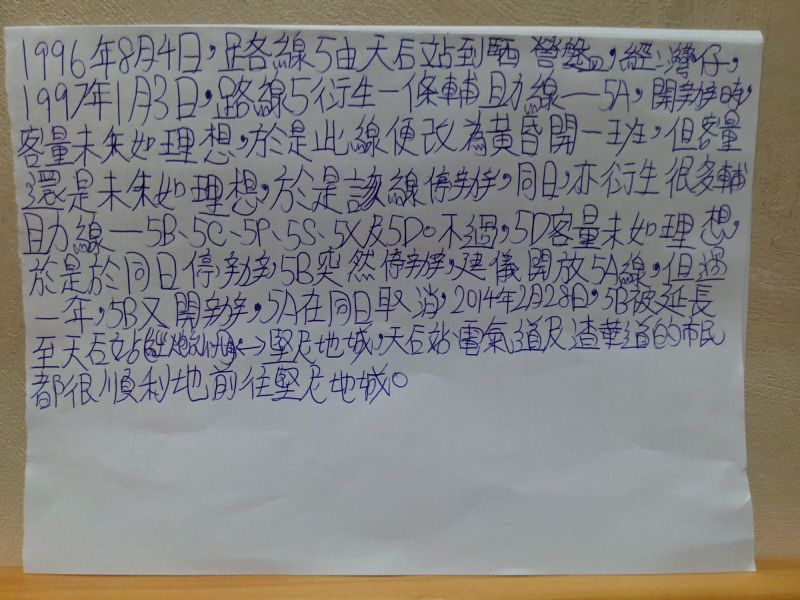 1996年8月4日，路線5由天后站到西營盤，經灣仔，
1997年1月3日，路線5衍生一條輔助線—5A，開辦時，
客量未如理想，於是此線便改為黃昏開一班，但客量
還是未如理想，於是該線停辦，同日，亦衍生很多輔
助線—5B、5C、5P、5S、5X及5D。不過，5D客量未如理想，
於是於同日停辦，5B突然停辦，建議開放5A線，但過
一年，5B又開辦，5A在同日取消，2014年2月28日，5B被延長
至天后站↔堅尼地城，天后站電氣道及渣華道的市民
都很順利地前往堅尼地城。